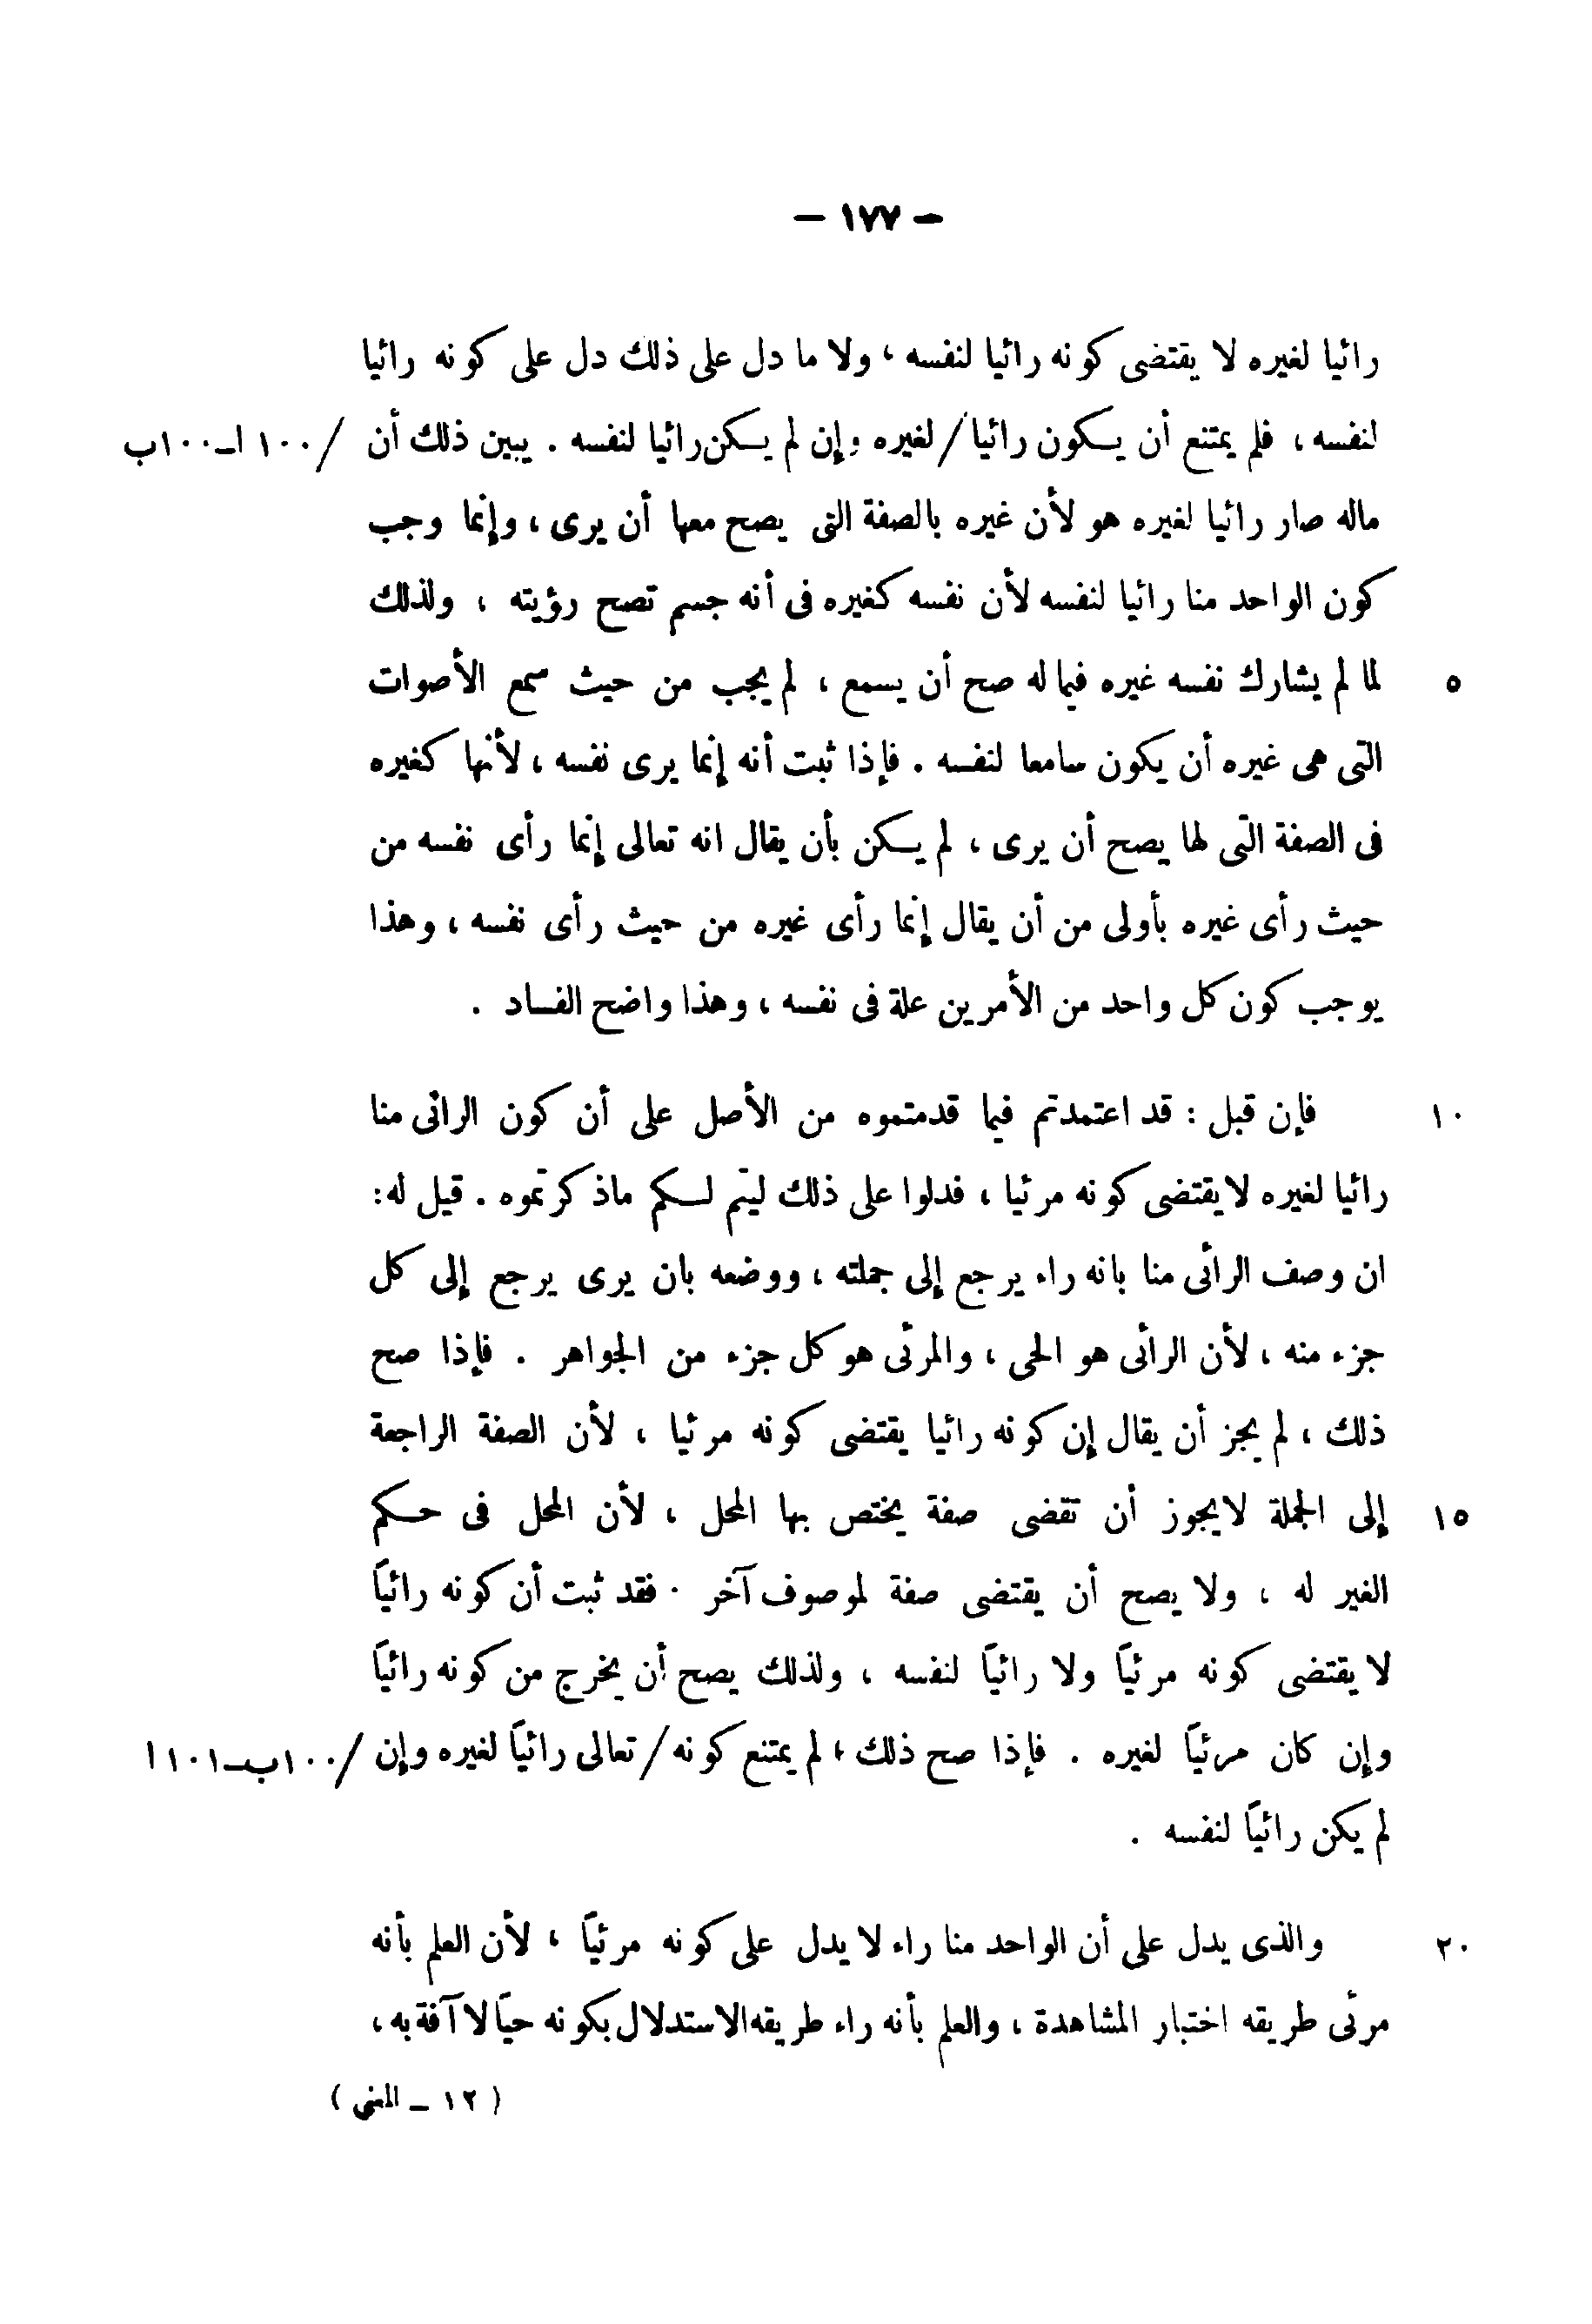 — ١٧٧ —
رائيا لغيره لا يقتضى كونه رائيا لنفسه ، ولا ما دل على ذلك دل على كونه رائيا
لنفسه ، فلم يمتنع أن يكون رائيا / لغيره وإن لم يكن رائيا لنفسه . يبين ذلك أن /١٠٠ ا ـ ١٠٠ب
ماله صار رائيا لغيره هو لأن غيره بالصفة التى يصح معها أن يرى ، وإنما وجب
كون الواحد منا رائيا لنفسه لأن نفسه كغيره فى أنه جسم تصح رؤيته ، ولذلك
٥ لما لم يشارك نفسه غيره فيما له صح أن يسمع ، لم يجب من حيث سمع الأصوات
التى هى غيره أن يكون سامعا لنفسه . فإذا ثبت أنه إنما يرى نفسه ، لأنها كغيره
فى الصفة التى لها يصح أن يرى ، لم يكن بأن يقال انه تعالى إنما رأى نفسه من
حيث رأى غيره بأولى من أن يقال إنما رأى غيره من حيث رأى نفسه ، وهذا
يوجب كون كل واحد من الأمرين علة فى نفسه ، وهذا واضح الفساد .
١٠ فإن قبل : قد اعتمدتم فيما قدمتموه من الأصل على أن كون الرائى منا
رائيا لغيره لا يقتضى كونه مرئيا ، فدلوا على ذلك ليتم لكم ماذكرتموه . قيل له :
ان وصف الرائى منا بانه راء يرجع إلى جملته ، ووضعه بان يرى يرجع إلى كل
جزء منه ، لأن الرائى هو الحى ، والمرئى هو كل جزء من الجواهر . فإذا صح
ذلك ، لم يجز أن يقال إن كونه رائيا يقتضى كونه مرئيا ، لأن الصفة الراجعة
١٥ إلى الجملة لايجوز أن تقضى صفة يختص بها المحل ، لأن المحل فى حكم
الغير له ، ولا يصح أن يقتضى صفة لموصوف آخر . فقد ثبت أن كونه رائياً
لا يقتضى كونه مرئياً ولا رائياً لنفسه ، ولذلك يصح أن يخرج من كونه رائياً
وإن كان مرئياً لغيره . فإذا صح ذلك ، لم يمتنع كونه / تعالى رائياً لغيره وإن /١٠٠ب ـ ١٠١ ا
لم يكن رائياً لنفسه .
٢٠ والذى يدل على أن الواحد منا راء لا يدل على كونه مرئياً ، لأن العلم بأنه
مرئى طريقه اختبار المشاهدة ، والعلم بأنه راء طريقه الاستدلال بكونه حياً لا آفة به ،
( ١٢ ـ المغنى )